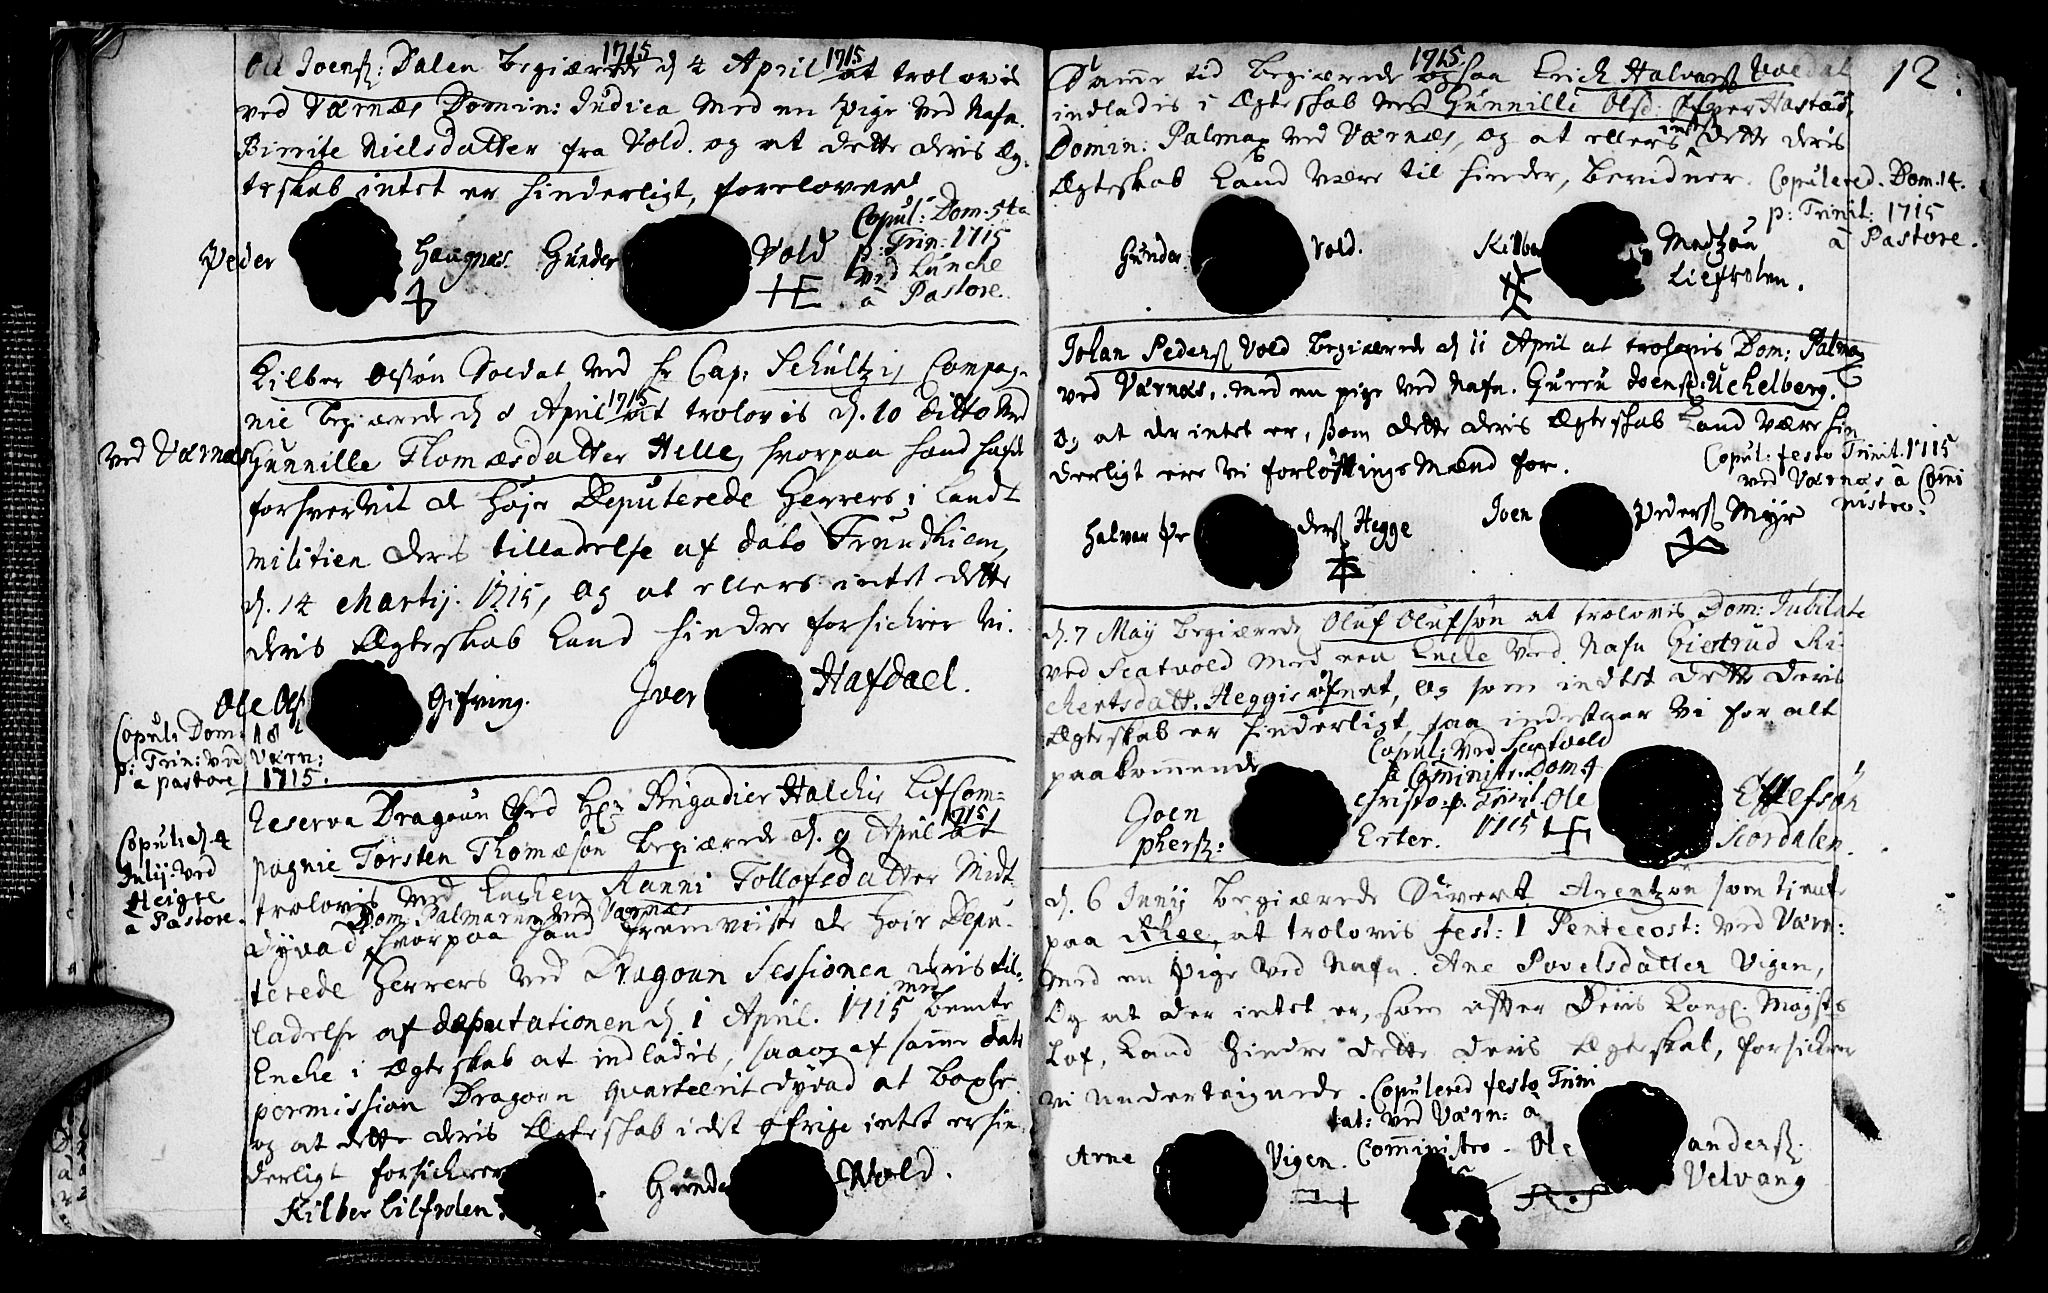 Ole Joensz: Dalen begiærede d 4 April 1715 at trolovis
ved Værnæs Domin: Judica med en Pige ved Nafn.
Birrite Nielsdatter fra Vold. og at dette deris Æg-
teskab intet er hinderligt, forelover
Peder Haugnæs. Gunder Vold
Copul: Dom: 5ta
p: Trin: 1715
ved Lunche
a Pastore.
Kilber Olsøn Soldat ved hr Cap: Schultzis Compag-
nie begiærede d 8 April 1715 at trolovis d. 10 ditto
ved Værnæs Gunnille Thomæsdatter Helle, hvorpaa hand hafde
forhvervit de Høje Deputerede Herrers i Landt
militien deris tilladelse af dato Trundhiem,
d. 14 Martij. 1715, og at ellers intet dette
deris Ægteskab kand hindre forsickrer vi.
Ole Ols Gifring. Iver Hafdael.
Copul: Dom: 18
p: Trin: ved Værn:
a pastore 1715.
Reserva Dragoun ved Hr: Brigadier Halchis Lifcom-
pagnie Torsten Thomæsøn begiærede d. 9 April 1715 at
trolovis med Enchen Ranni Tollofsdatter Midt-
Dom: Palmarum ved Værnæs
dyvad hvorpaa hand fremviiste de Høie Depu-
terede Herrers ved Dragoun Sessionen deris til-
ladelse af deputationen d. 1 April. 1715 med bemte
Enche i Ægteskab at indladis, saa og af samme dato
permission Dragoun quarteerit dyvad at boxle
og at dette deris Ægteskab i det øfrige intet er hin-
derligt forsickrer
Kilber Lilfrolen. Gunder Wold.
Copul: d. 4
Julij: ved
Heigre
a Pastore.
12.
Samme tid begiærede 1715 ogsaa Erich Halvorsz Voldal
indladis i Ægteskab med Gunnille Olsd: Hastad,
Domin: Palmar ved Værnæs, og at ellers intet dette deris
Ægteskab kand være til hinder, bevidner.
Copulered. Dom. 14.
p: Trinit: 1715
a Pastore.
Gunder Vold. Kilber Madtzøn
Lilfrolen.
Johan Pedersz Vold begiærede d 11 April at trolovis Dom: Palmar
ved Værnæs, med en pige ved Nafn. Gurru Joensd: Uchelberg.
Og at der intet er, som dette deris Ægteskab kand være hin
derligt ere vi forløftningsmænd for.
Copul: festo Trinit. 1715
ved Værnæs a Comi
nistro.
Halvor Pe dersz Hegge Joen Pedersz Myr
d. 7 May begiærede Oluf Olufsøn at trolovis Dom: Jubilate
ved Scatvold med een Enche ved Nafn Giertrud Ri-
chertsdatt. Heggis øfnet, og som indtet dette deris
Ægteskab er hinderligt, saa indestaar vi for alt
paakommende
Copul: ved Scatvold
a Cominist: Dom 4
p. Trin. 1715
Joen Christo-
phersz: Erter. Ole Ellefsøn
Stordalen.
d. 6 Junij begiærede Sivert Arentzøn som tiente
paa Rhee, at trolovis fest: 1 Pentecost: ved Værn:
med en Pige ved Nafn. Ane Povelsdatter Vigen,
Og at der intet er, som efter Deris Kongl: Mayts
Lof, kand hindre dette deris Ægteskab, forsickrer
vi underteignede.
Copulered festo Trini
tat: ved Værn: a
Comministro.
Arne Vigen. Ole andersz.
Velvang